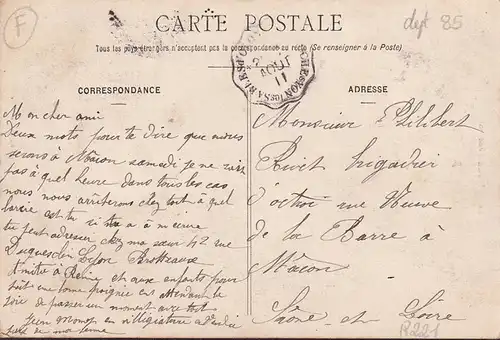 F
dept 85
CARTE POSTALE
Tous les pays étrangers n'acceptent pas la correspondance au recto (Se renseigner à la Poste)
CORRESPONDANCE
Mon cher ami
Deux mots pour te dire que nous
serons à Mâcon samedi je ne sais
pas à quel heure dans tous les cas
nous nous arriverons chez toi à quel
tu peut adresser chez ma sœur 42 rue
Duguesclin Lyon Brotteaux
et aux enfants pour
toit une bonne poignée en attendant le
de passer un moment avec toi
en villégiature
AOUT
11
ADRESSE
Monsieur Philibert
Rivet brigadier
d'octroi rue Neuve
de la Barre à
Mâcon
Saône et Loire
R221